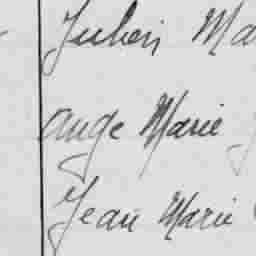 Julien Ma
Ange Marie
Jean Marie